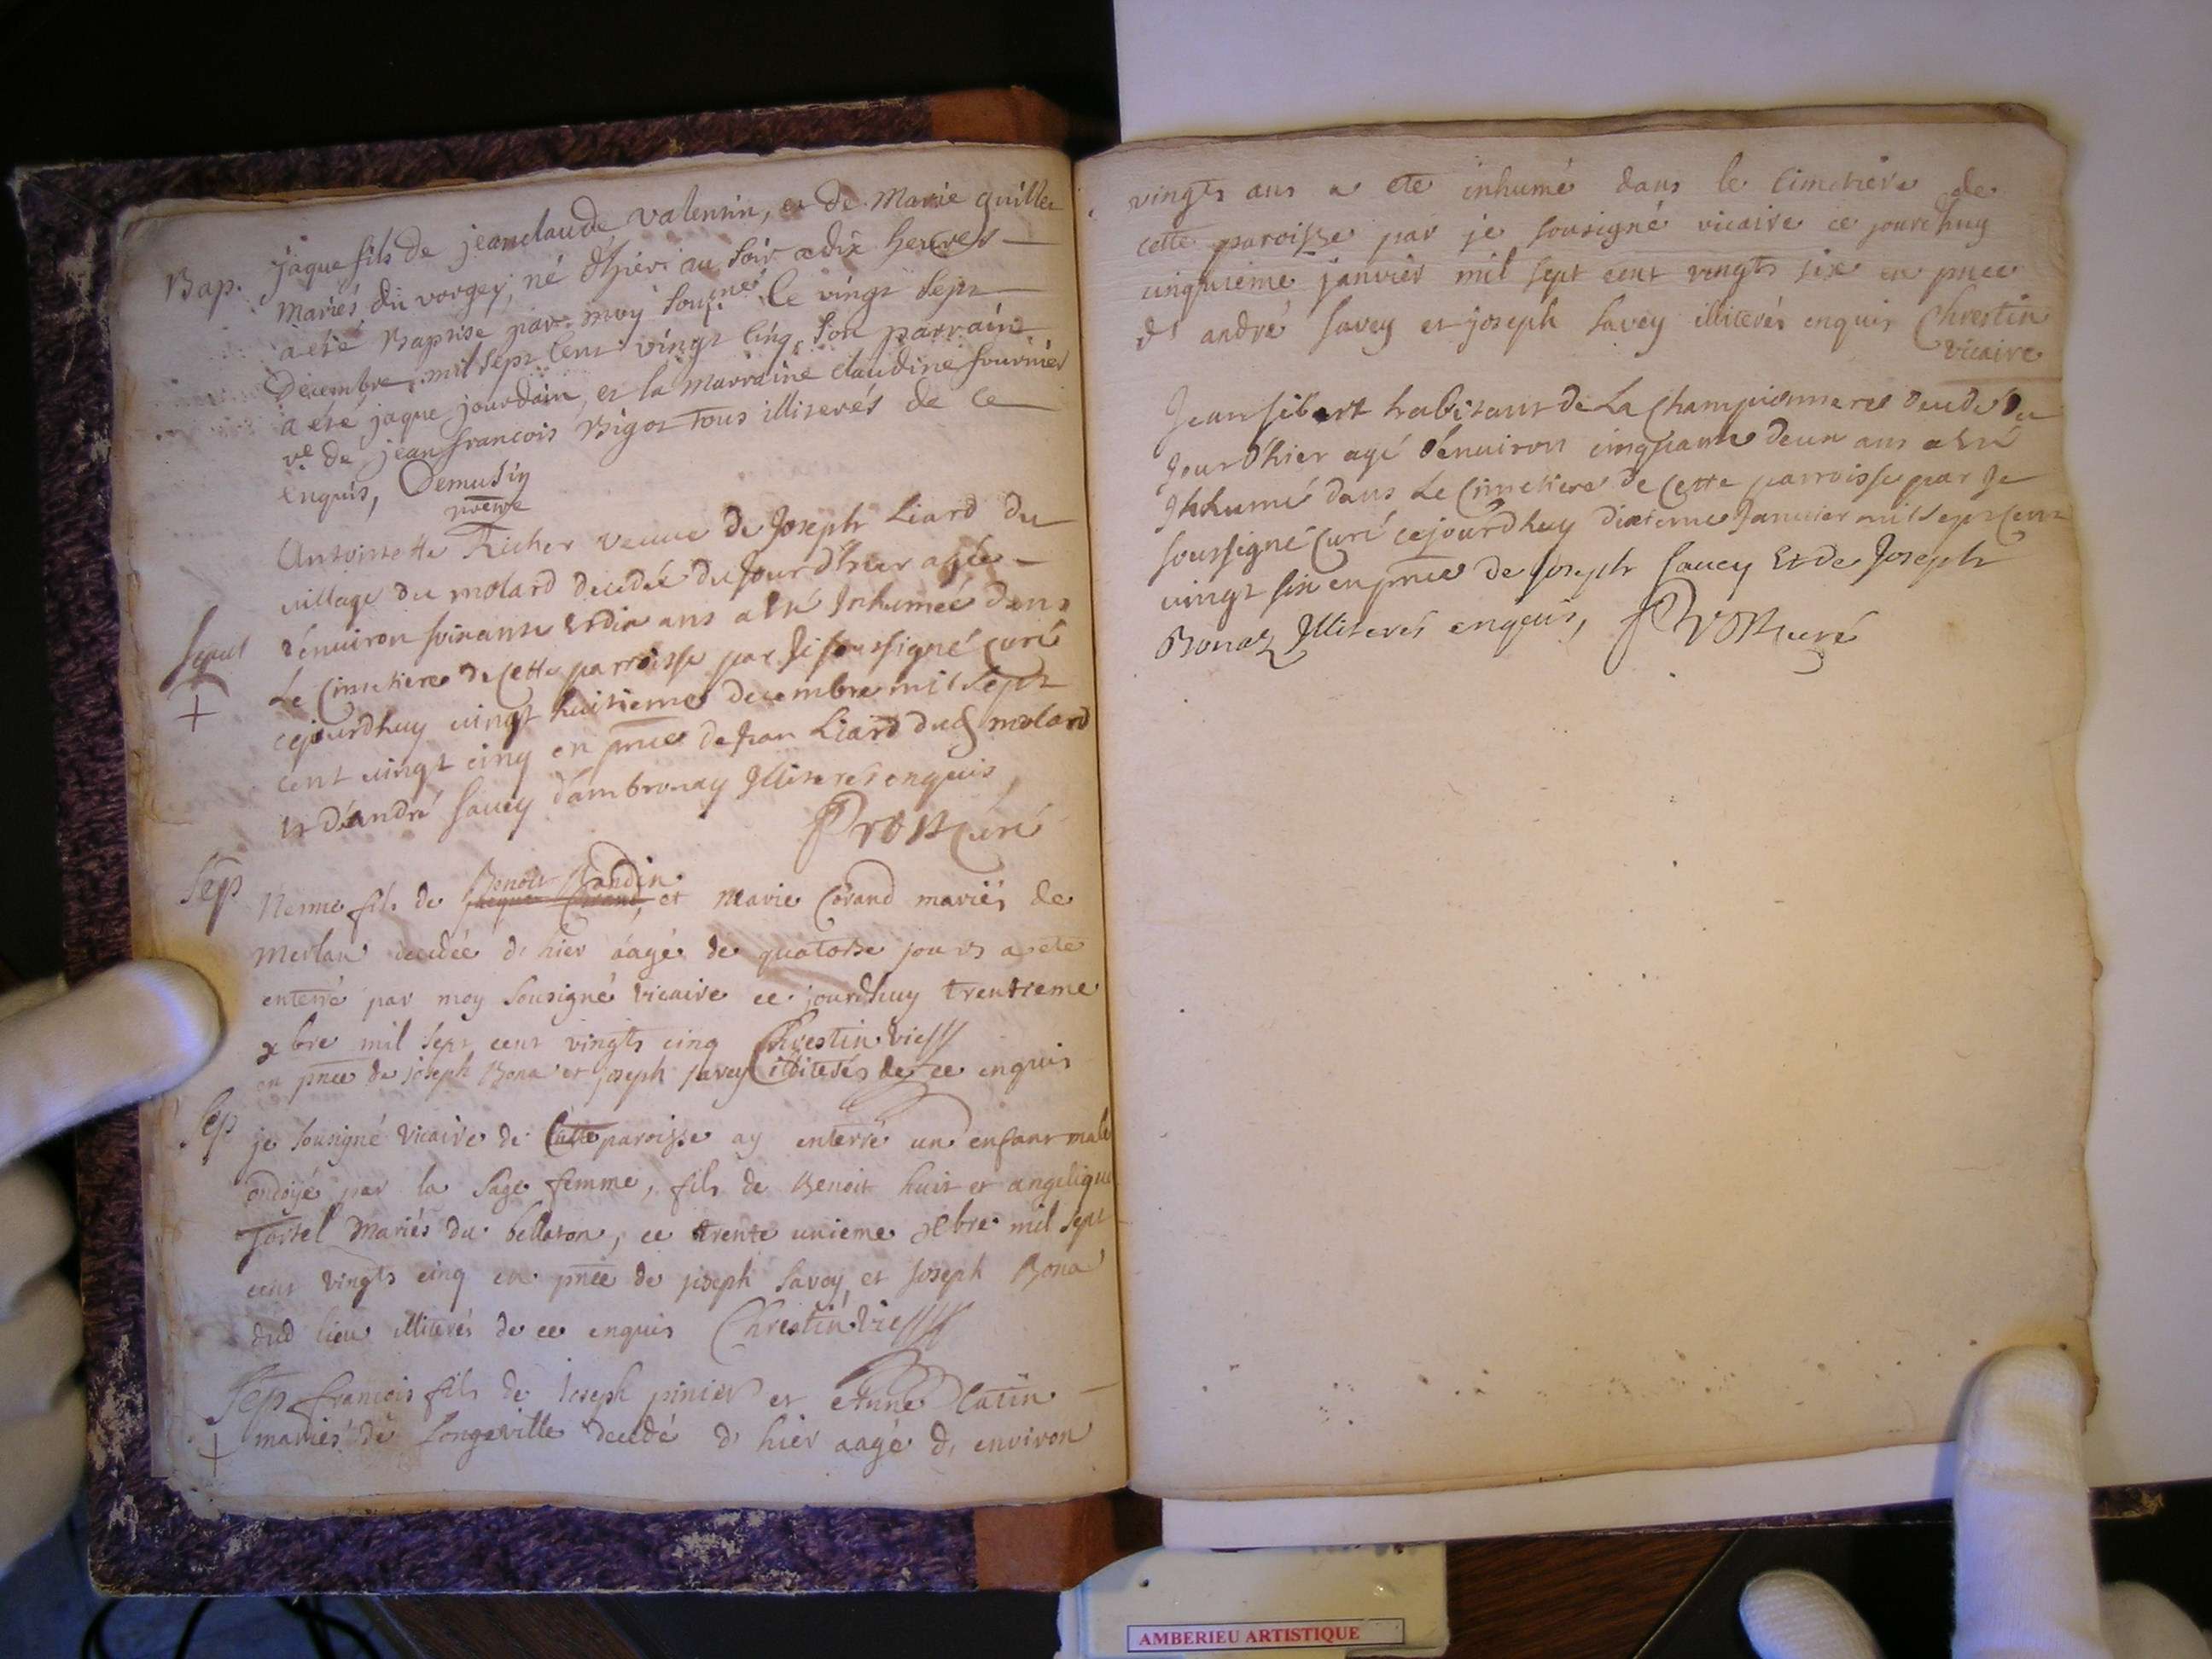 Bap. jaque fils de jeanclaude valentin, et de Marie quillet
mariés du vorgey, né d'hier au soir a dix heures
a eté Baptisé par moy sousné le vingt sept
Decembre mil sept cent vingt cinq, son parrain
a eté jaque jourdain, et la marraine claudine fournier
ve de jean francois Bigot tous illiterés de ce
enquis, Demusin
Antoinette Richer veuve de Joseph Liard du
village du molard decedée du jour d'hier agée
Sepul d'environ soixante et dix ans a eté Inhumée dans
Le Cimetiere de Cette parroisse par Je soussigné Curé
+
cejourdhuy vingt huitieme decembre mil sept
cent vingt cinq en pnce de Jean Liard dud molard
et d'andré savey d'ambronay Illiterés enquis,
Prost Curé
Sep
Benoit Bandin
Nesme fils de et Marie Corand mariés de
Merlan decedée d'hier aagé de quatorse jours a ete
enterré par moy sousigné vicaire ce jourdhuy trentieme
xbre mil sept cent vingts cinq Chrestin vic
en pnce de joseph Bona et joseph savey illiterés de ce enquis
Sep
je sousigné vicaire de Cette paroisse ay enterré un enfant male
ondoyé par la sage femme, fils de Benoit huit et angelique
Tortel mariés du bellaton, ce trente unieme xbre mil sept
cent vingts cinq en pnce de joseph savey et Joseph Bona
dud lieu illiterés de ce enquis Chrestin vic
Sep francois fils de Joseph pinier et Anne Catin
+ mariés de Longeville decedé d'hier aagé d'environ
vingts ans a ete inhumé dans le cimetiere de
cette paroisse par je sousigné vicaire ce jourdhuy
cinquieme janvier mil sept cent vingts six en pnce
d'andré savey et joseph savey illiterés enquis Chrestin
vicaire
Jean sibert habitant de La Championnere decedé du
Jour d'hier agé d'environ cinquante deux ans a eté
Inhumé dans Le Cimetiere de Cette parroisse par Je
soussigné Curé cejourdhuy dixieme Janvier mil sept cent
vingt six en pnce de Joseph savey Et de Joseph
Bonaz Illiterés enquis, Prost curé
AMBERIEU ARTISTIQUE